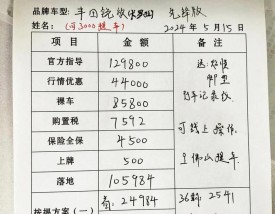 品牌车型: 丰田锐放 先锋版
姓名: (订3000提车) 2024年5月15日
项目 金额 备注
官方指导 129800
行情优惠 44000
裸车 85800
购置税 7592 可线上操作
保险全保 4500
上牌 500 佛山提车
落地 105984
按揭方案(一) 首: 24984 36期: 2541